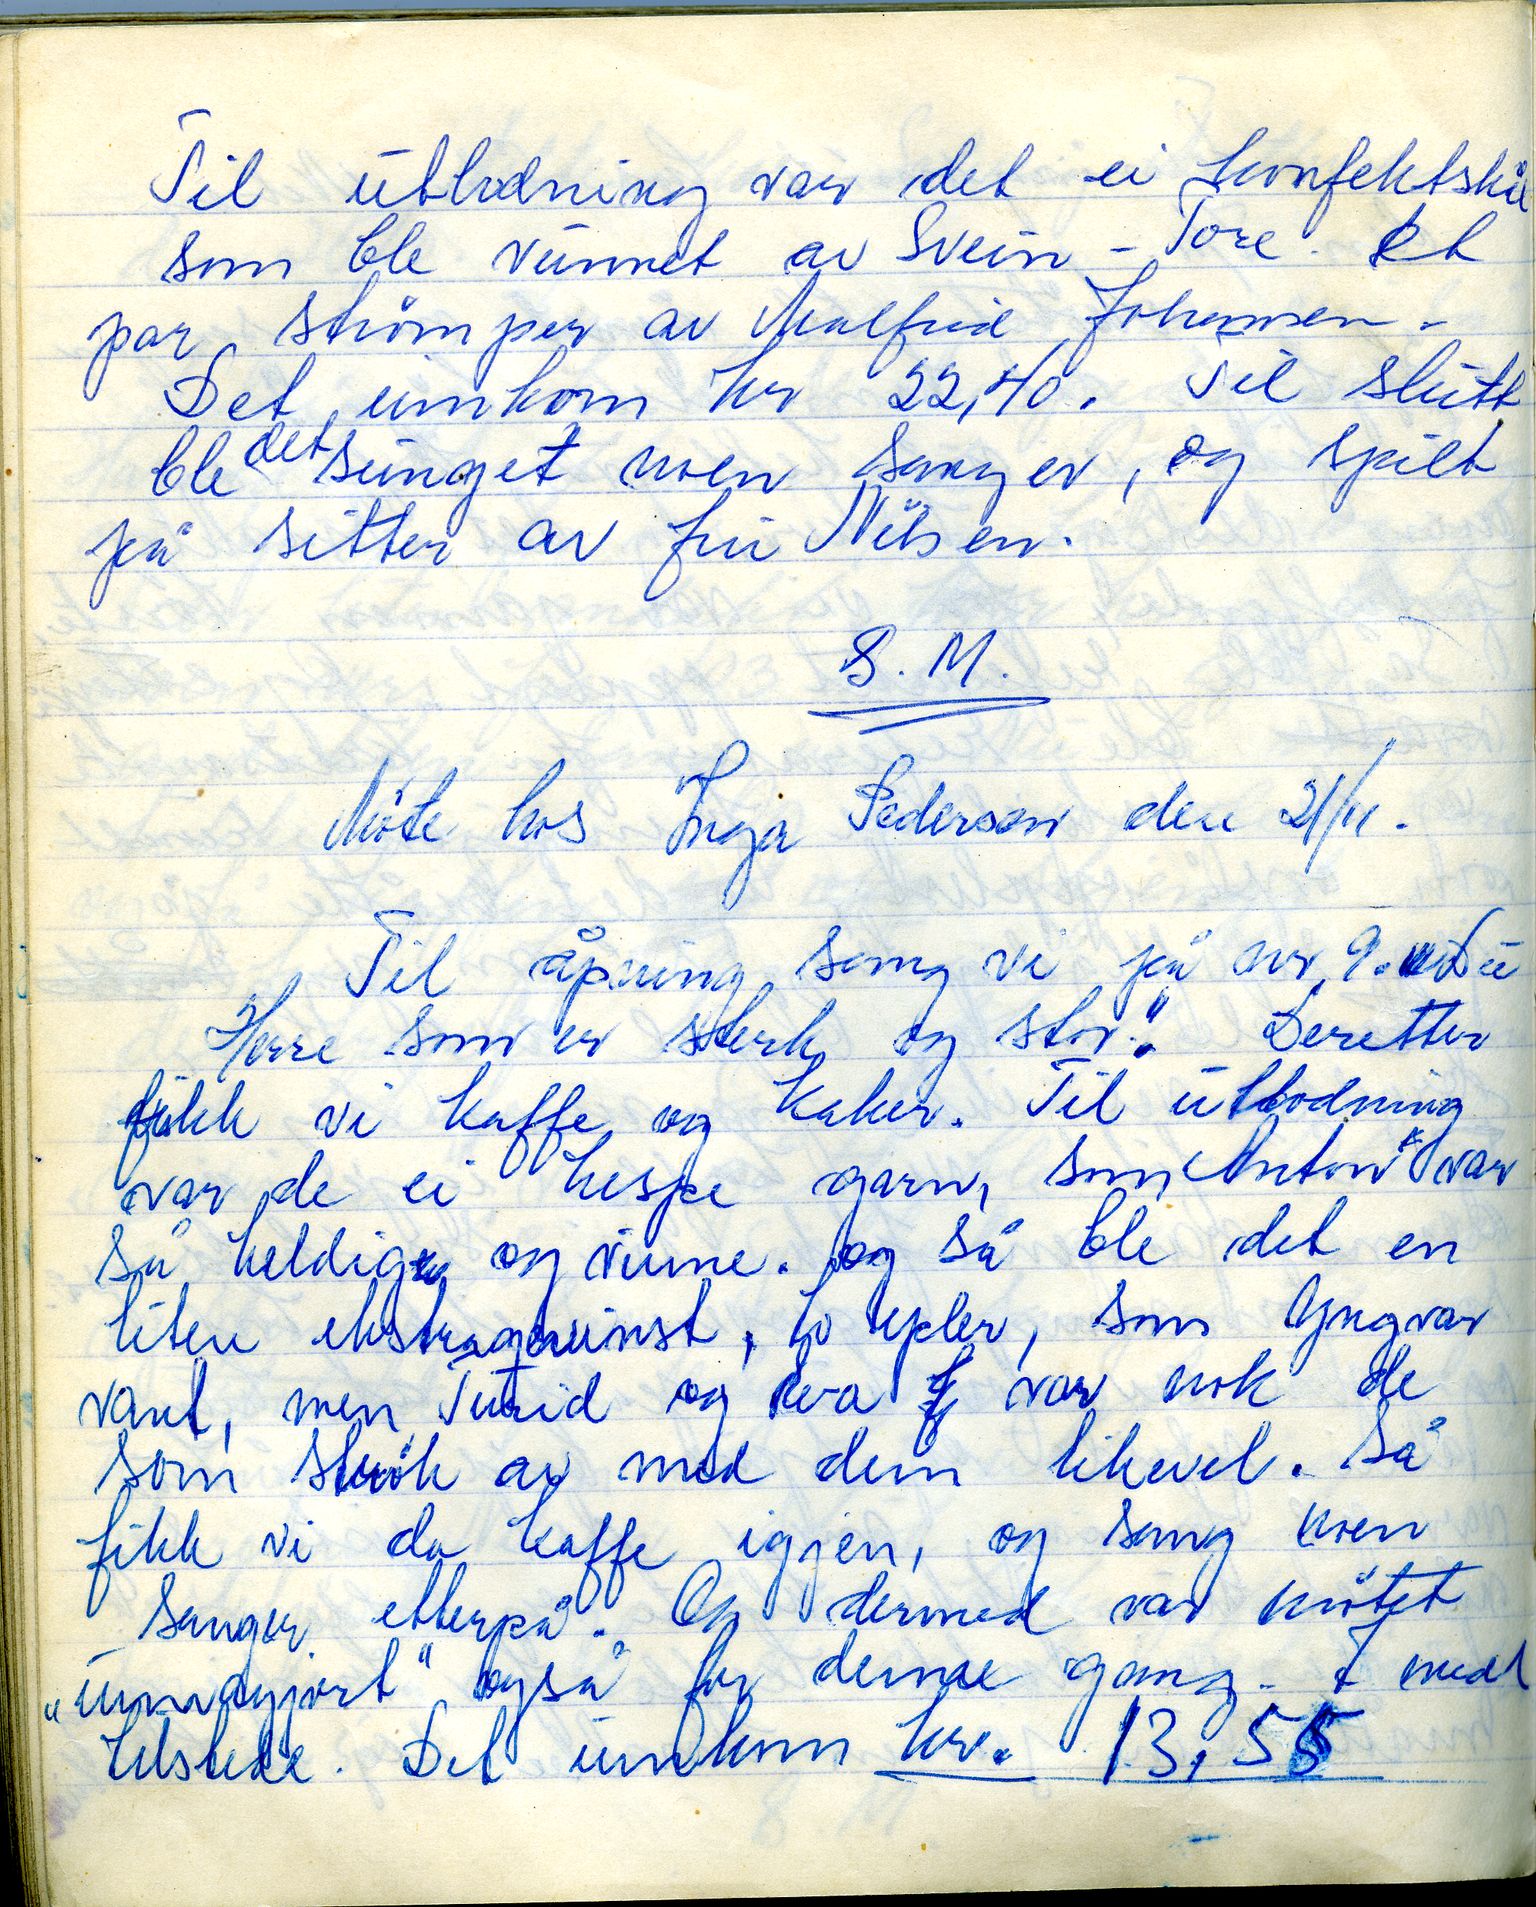 Til utlodning var det ei konfektskål
som ble vunnet av Svein-Tore. Et
par strømper av Malfrid Johansen.
Det innkom kr 22,40. Til slutt
ble det sunget noen sanger, og spilt
på sitter av fru Nilsen.
S. M.
Møte hos Inga Pedersen den 21/11.
Til åpning sang vi på nr 9. „Du
Herre som er sterk og stor". Deretter
fikk vi kaffe og kaker. Til utlodning
var de ei hespe garn, som „Anton" var
så heldig og vinne. og så ble det en
liten ekstragevinst, to epler, som Yngvar
vant, men Turid og Eva var nok de
som strøk av med dem likevel. Så
fikk vi da kaffe igjen, og sang noen
sanger etterpå. Og dermed var møtet
„unnagjort" også for denne gang. 7 medl
tilstede. Det innkom kr. 13,55